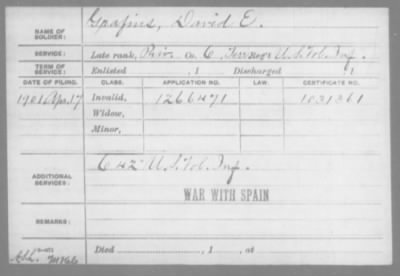 NAME OF SOLDIER: Grafius, David E.
SERVICE: Late rank, Priv. Co. C, U.S. Vol. Inf.
TERM OF SERVICE: Enlisted , 1 Discharged , 1
DATE OF FILING. CLASS. APPLICATION NO. LAW. CERTIFICATE NO.
1901 Apr. 17 Invalid, 1266471 1031361
Widow,
Minor,
ADDITIONAL SERVICES: C 42" U.S. Vol. Inf.
WAR WITH SPAIN
REMARKS:
Died , 1 , at